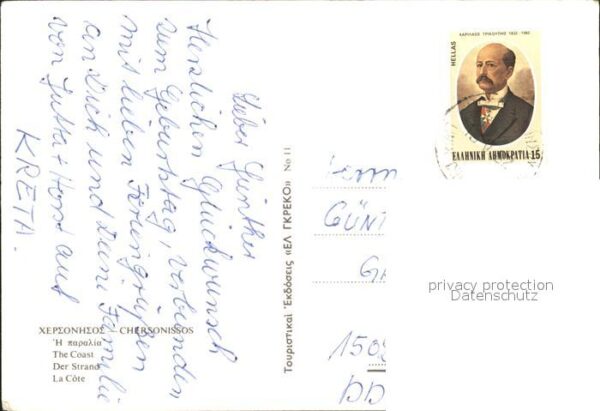 Lieber Günther
Herzlichen Glückwunsch
zum Geburtstag, verbunden
mit lieben Feriengrüßen
an Dich und Deine Familie
von Jutta + Horst aus
KRETA.
ΧΕΡΣΟΝΗΣΟΣ – CHERSONISSOS
Ἡ παραλία
The Coast
Der Strand
La Côte
Τουριστικαί Ἐκδόσεις «ΕΛ ΓΚΡΕΚΟ» No 11
HELLAS
ΧΑΡΙΛΑΟΣ ΤΡΙΚΟΥΠΗΣ 1832 - 1982
ΕΛΛΗΝΙΚΗ ΔΗΜΟΚΡΑΤΙΑ 15
Herrn
GÜNT
GA
150
DD
privacy protection
Datenschutz